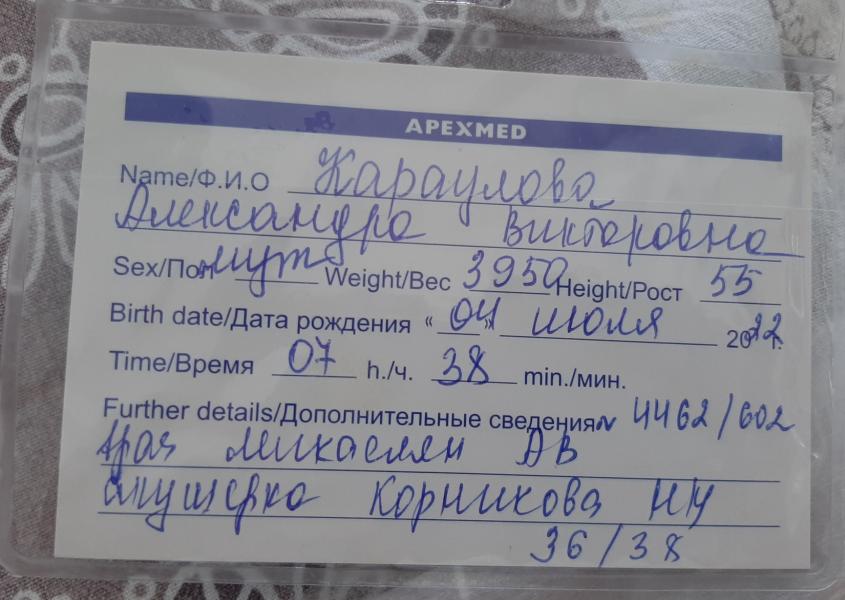 APEXMED
Name/Ф.И.О Караулова
Александра Викторовна
Sex/Пол муж Weight/Вес 3950 Height/Рост 55
Birth date/Дата рождения “04” июля 2022 г.
Time/Время 07 h./ч. 38 min./мин.
Further details/Дополнительные сведения N 4462/602
врач Микаелян АВ
акушерка Корникова НУ
36/38